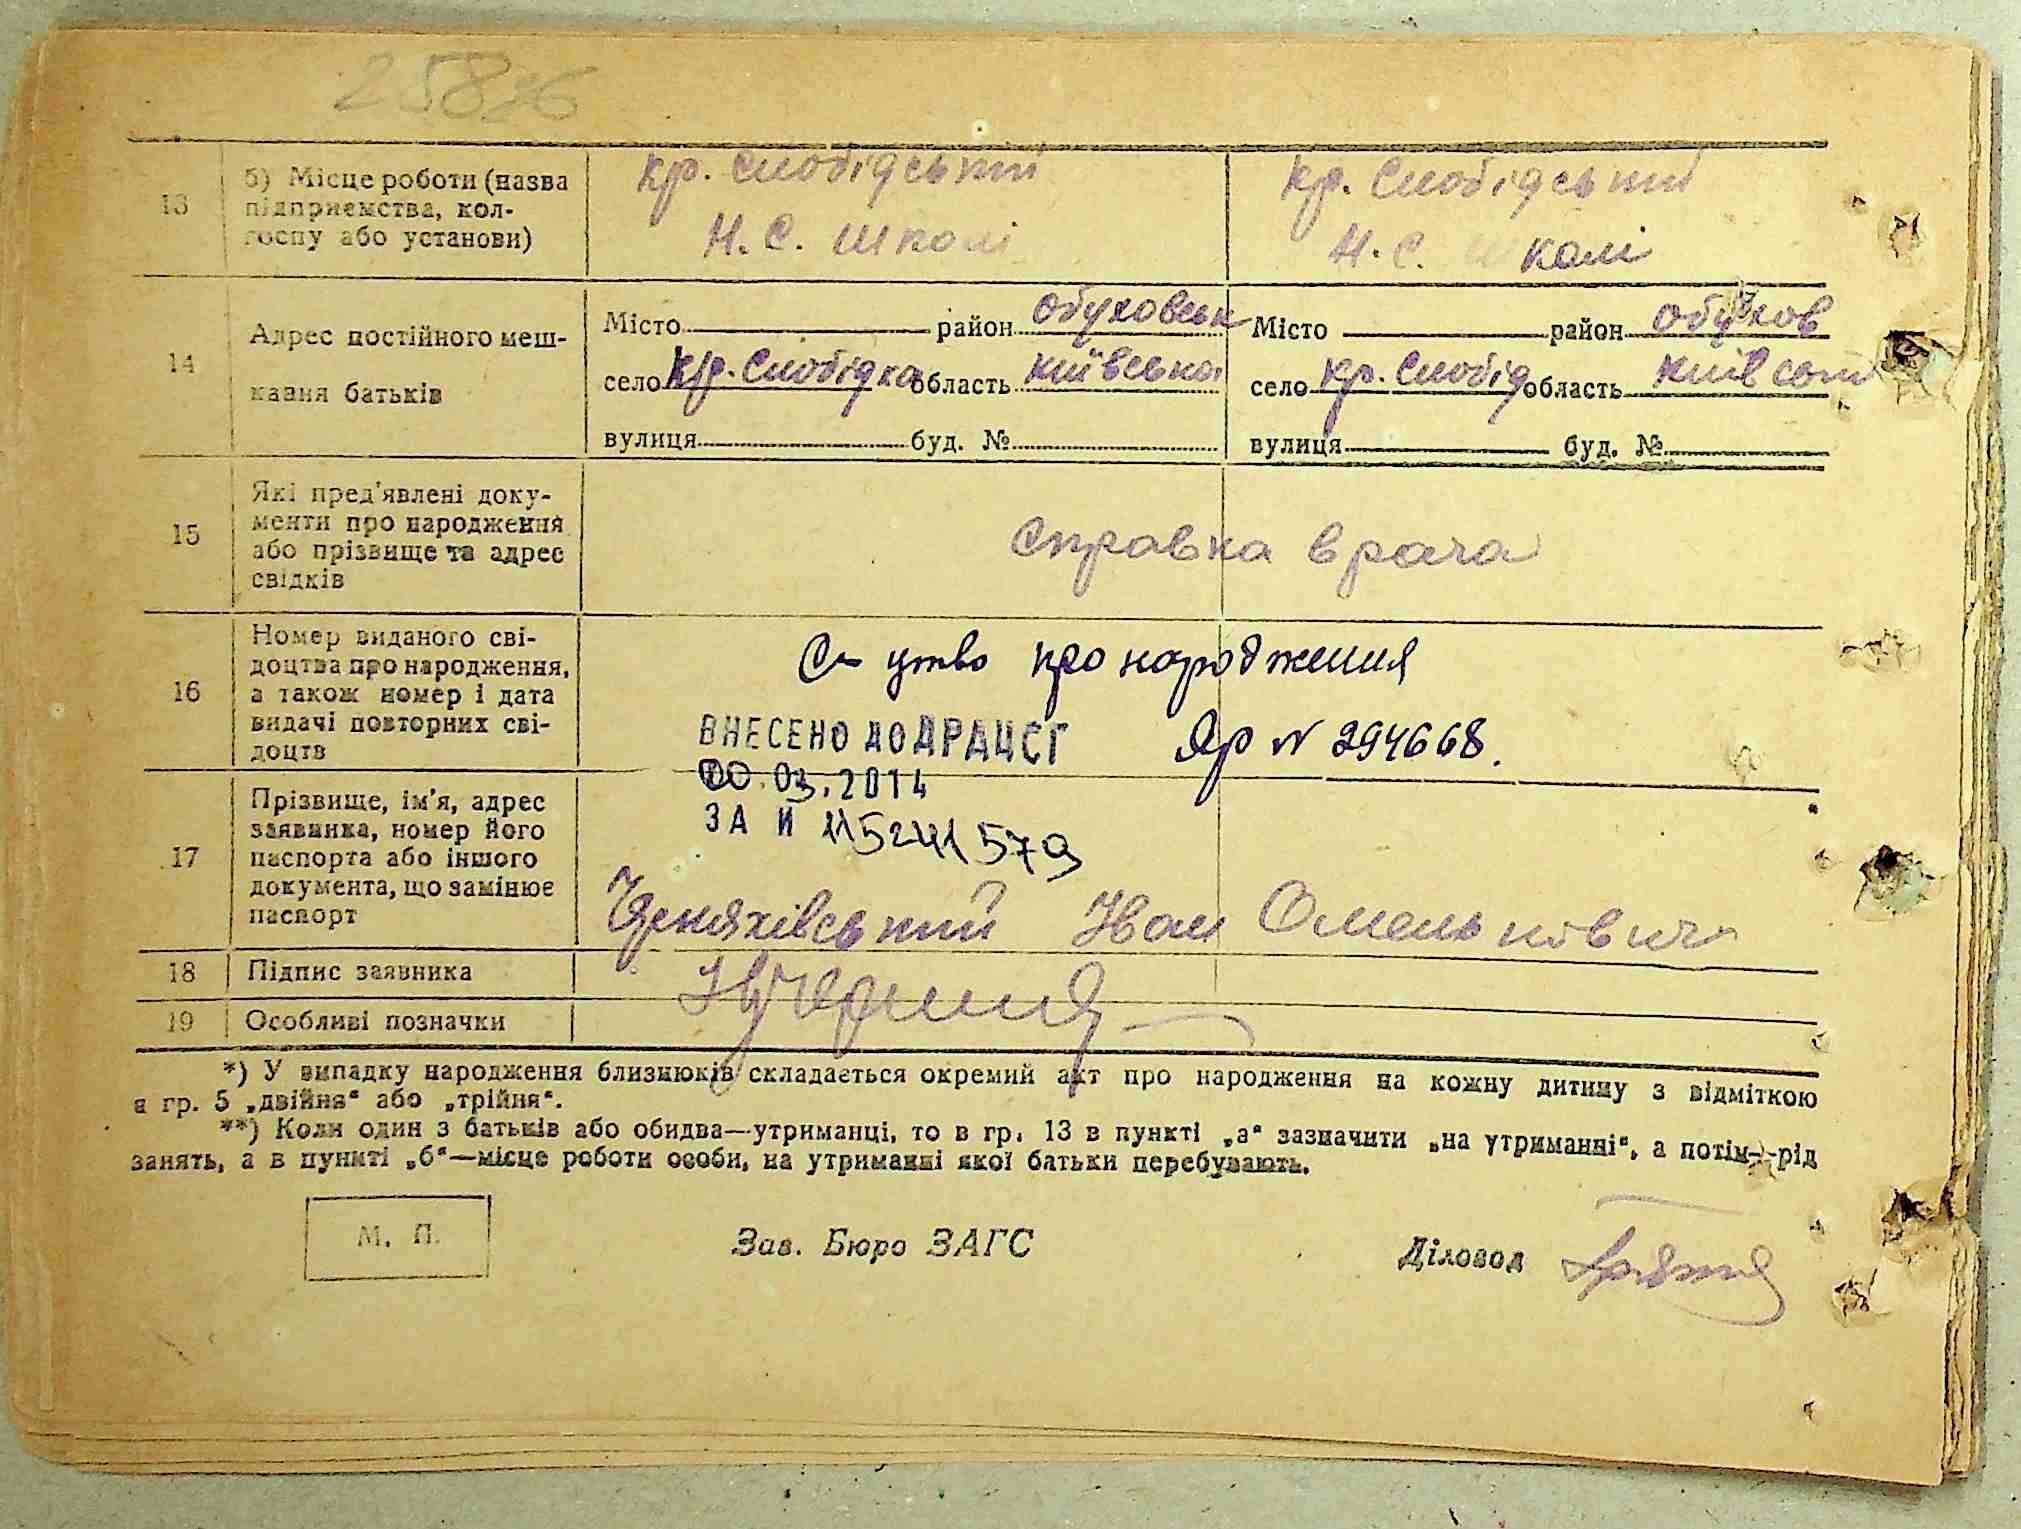 258
13 б) Місце роботи (назва підприємства, колгоспу або установи)
кр. Слобідській
Н. С. Школі
кр. Слобідській
Н. С. Школі
14 Адрес постійного мешкання батьків
Місто район Обуховськ
село кр. Слобідка область київська
вулиця буд. №
Місто район Обухов
село кр. Слобід область
вулиця буд. №
15 Які пред'явлені документи про народження або прізвище та адрес свідків
Справка врача
16 Номер виданого свідоцтва про народження, а також номер і дата видачі повторних свідоцтв
про народження
ВНЕСЕНО ДО ДРАЦСГ
Яр N 294668.
03.2014
ЗА N 115241579
17 Прізвище, ім'я, адрес заявника, номер його паспорта або іншого документа, що замінює паспорт
Черняхівський Іван Омелькович
18 Підпис заявника
19 Особливі позначки
*) У випадку народження близнюків складається окремий акт про народження на кожну дитину з відміткою
в гр. 5 „двійня“ або „трійня“.
**) Коли один з батьків або обидва—утриманці, то в гр. 13 в пункті „а“ зазначити „на утриманні“, а потім—рід
занять, а в пункті „б“—місце роботи особи, на утриманні якої батьки перебувають.
М. П.
Зав. Бюро ЗАГС
Діловод